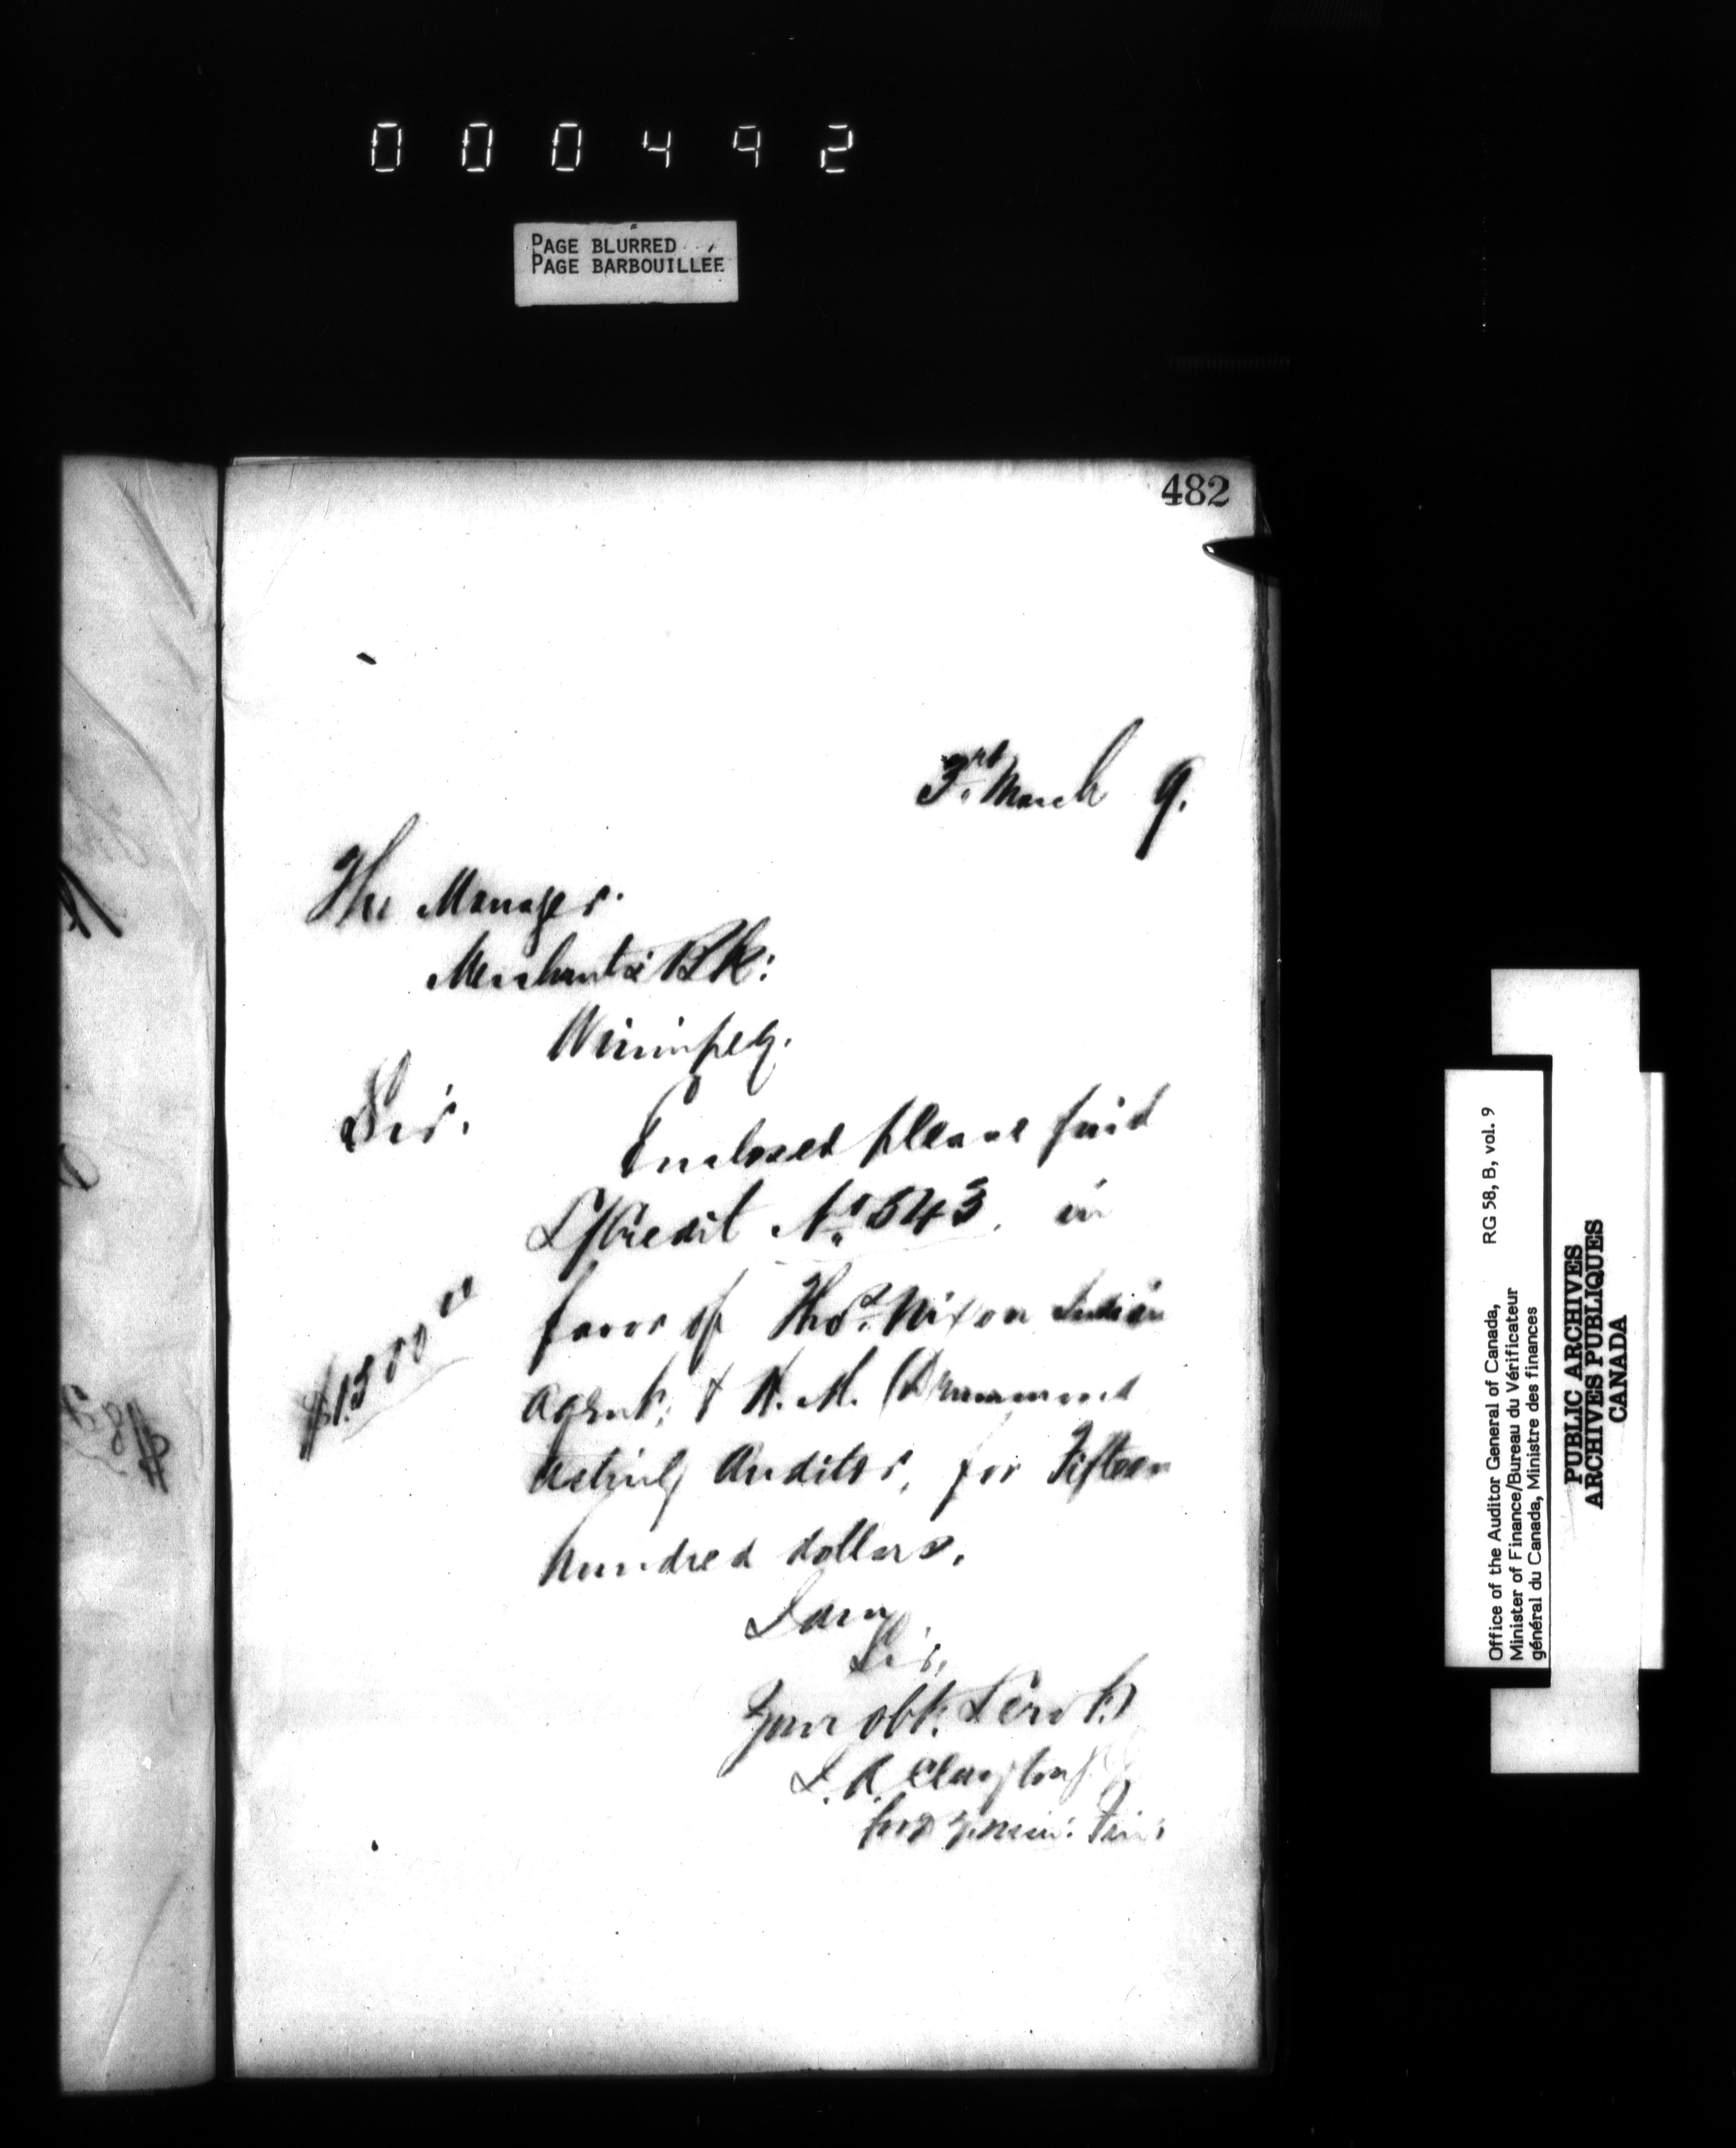 000492
PAGE BLURRED
PAGE BARBOUILLÉE
482
3rd March 9.
The Manager.
Merchants Bk:
Winnipeg.
Sir.
Enclosed please find
L/Credit No 543. in
favor of Thos. Nixon Indian
$1500 00
Agent, & H. M. Drummond
Acting Auditor, for Fifteen
hundred dollars.
I am
Sir,
Your obt. Servt.
Clayton
Min: Fin:
Office of the Auditor General of Canada, RG 58, B, vol. 9
Minister of Finance/Bureau du Vérificateur
général du Canada, Ministre des finances
PUBLIC ARCHIVES
ARCHIVES PUBLIQUES
CANADA